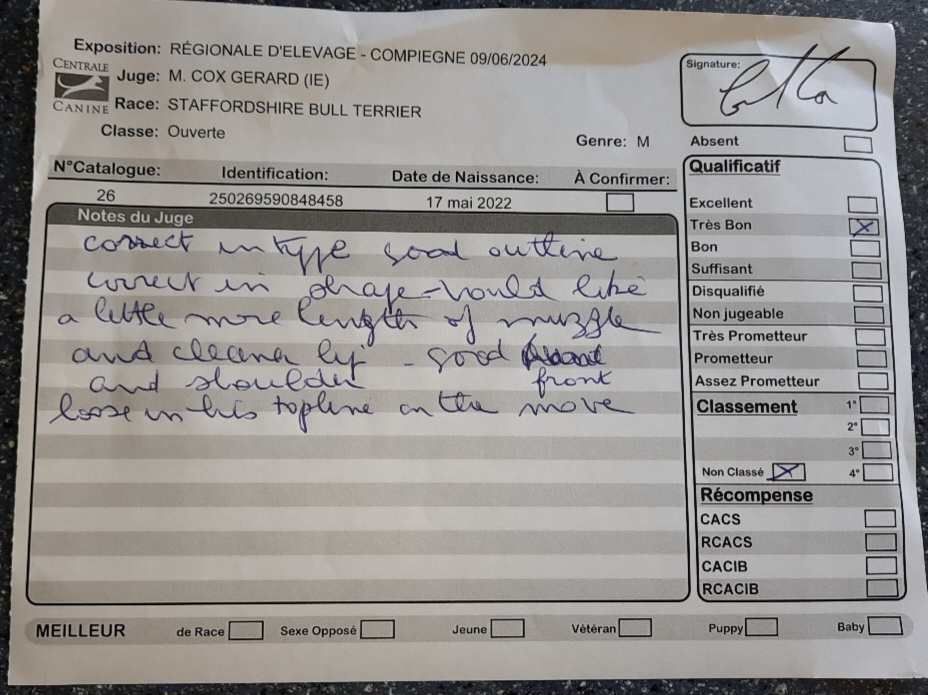 Exposition: RÉGIONALE D'ELEVAGE - COMPIEGNE 09/06/2024
CENTRALE
CANINE
Juge: M. COX GERARD (IE)
Race: STAFFORDSHIRE BULL TERRIER
Classe: Ouverte
Genre: M
Signature:
Absent
N°Catalogue: Identification: Date de Naissance: À Confirmer:
26 250269590848458 17 mai 2022
Notes du Juge
correct in type good outline
correct in shape - would like
a little more length of muzzle
and cleaner lip - good
and shoulder front
loose in his topline on the move
Qualificatif
Excellent
Très Bon X
Bon
Suffisant
Disqualifié
Non jugeable
Très Prometteur
Prometteur
Assez Prometteur
Classement 1°
2°
3°
Non Classé X 4°
Récompense
CACS
RCACS
CACIB
RCACIB
MEILLEUR de Race Sexe Opposé Jeune Vétéran Puppy Baby